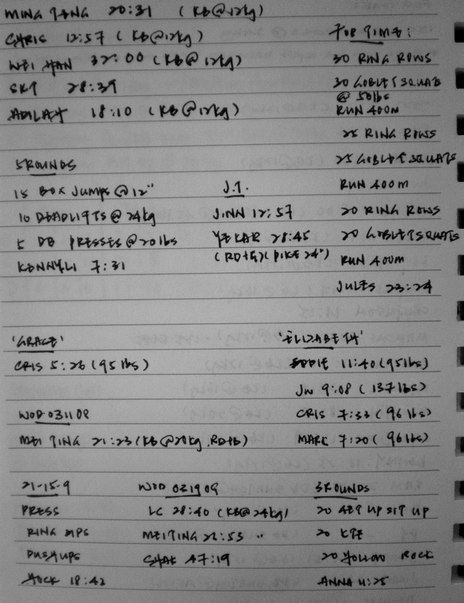 MING YANG 20:31 (KB@12kg)
CHRIS 12:57 (KB@12kg)
WEI HAN 32:00 (KB@12kg)
SKY 28:39
ADILAH 18:10 (KB@12kg)
FOR TIME:
30 RING ROWS
30 GOBLET SQUATS
@ 50lbs
RUN 400M
25 RING ROWS
25 GOBLET SQUATS
RUN 400M
20 RING ROWS
20 GOBLET SQUATS
RUN 400M
JULES 23:24
5 ROUNDS
15 BOX JUMPS @ 12"
10 DEADLIFTS @ 24kg
5 DB PRESSES @ 20lbs
KENNYLI 7:31
J.T.
JINN 12:57
YEKAR 28:45
(RD+G)(PIKE 24")
'GRACE'
CRIS 5:26 (95lbs)
'ELIZABETH'
EDDIE 11:40 (95lbs)
JW 9:08 (137lbs)
CRIS 7:33 (96lbs)
MARC 7:20 (96lbs)
WOD 031108
MEI TING 21:23 (KB@20kg, RD+B)
21-15-9
PRESS
RING DIPS
PUSHUPS
HOCK 18:42
WOD 021909
LC 28:40 (KB@24kg)
MEITING 22:53 "
SHAK 47:19
3 ROUNDS
20 GET UP SIT UP
20 KTE
20 HOLLOW ROCK
ANNA 11:25